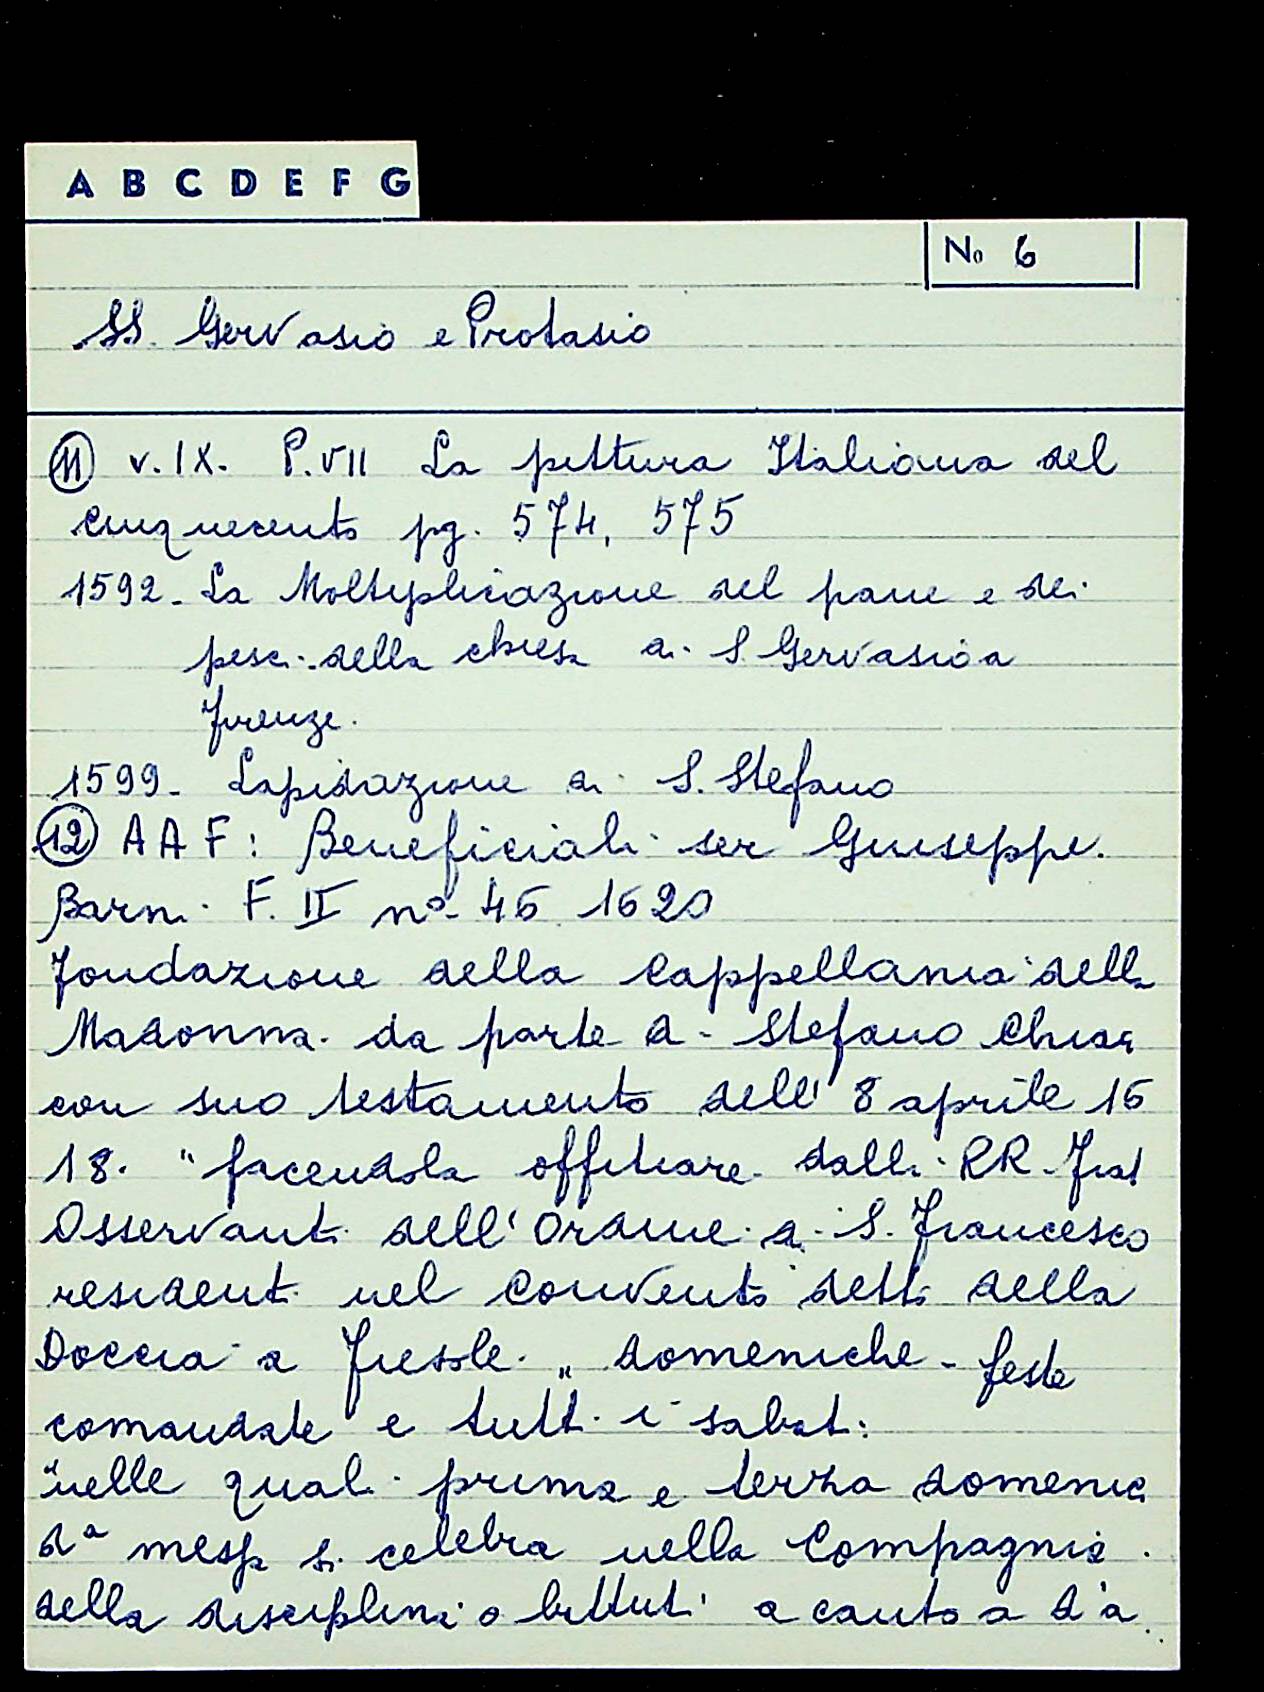 A B C D E F G
No 6
SS. Gervasio e Protasio
11 v. IX. P. VII La pittura Italiana del
cinquecento pg. 574, 575
1592- La Moltiplicazione del pane e dei
pesci della chiesa di S. Gervasio a
Firenze.
1599- Lapidazione di S. Stefano
12 AAF: Beneficiali ser Giuseppe
Barni F. II nº 46 1620
Fondazione della Cappellania della
Madonna da parte di Stefano
con suo testamento dell' 8 aprile 16
18. "facendola offitiare dalli RR. Frat
Osservanti dell'Ordine di S. Francesco
residenti nel Convento detto della
Doccia a Fiesole " domeniche - feste
comandate e tutti i sabati:
"nelle quali prima e terza domenica
dª messa si celebra nella Compagnia
della disciplina o battuti a canto a d'a